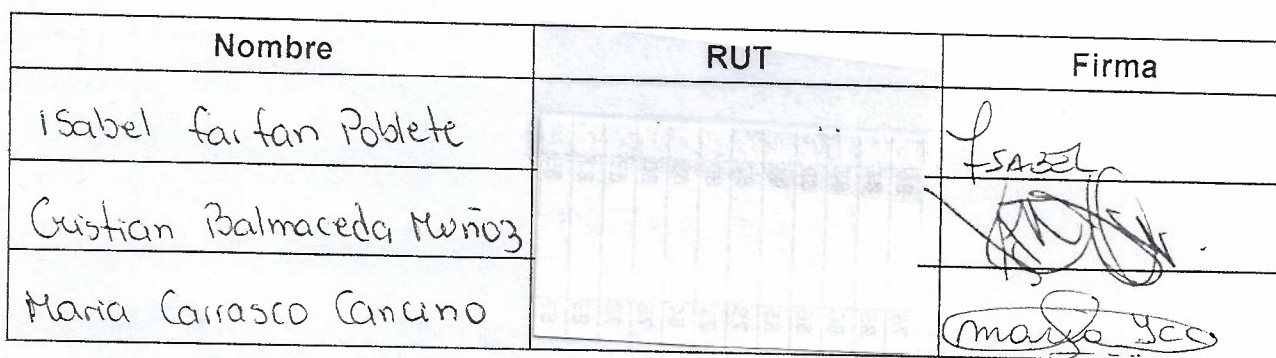 Nombre RUT Firma
isabel farfan Poblete ISABEL
Cristian Balmaceda Muñoz
Maria Carrasco Cancino Maria